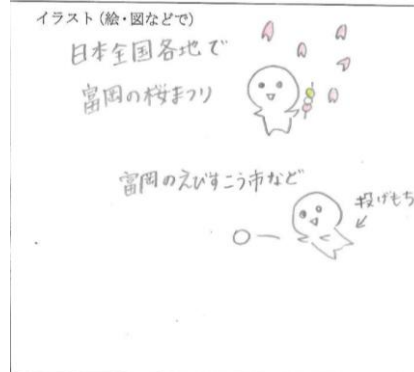 イラスト（絵・図などで）
日本全国各地で
富岡の桜まつり
富岡のえびすこう市など
投げもち